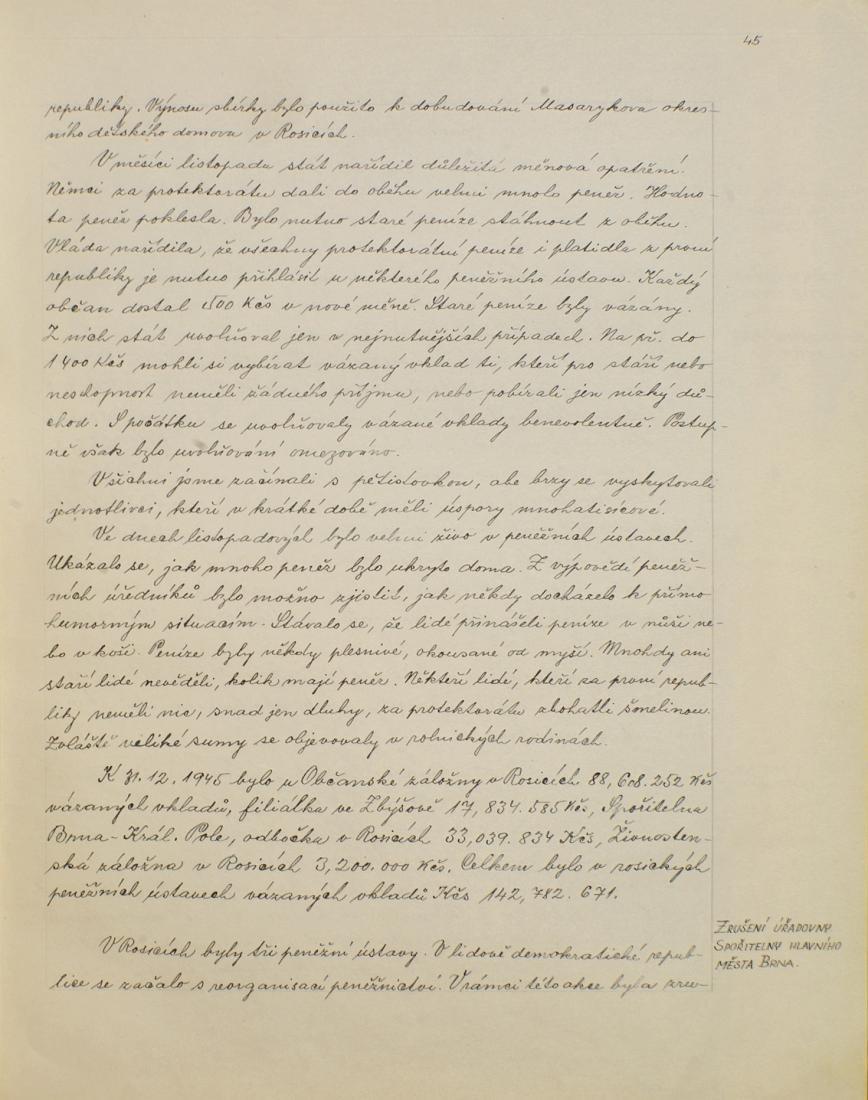 45
republiky. Výnosu sbírky bylo použito k dobudování Masarykova okres-
ního dětského domova v Rosicích.
V měsíci listopadu stát nařídil důležitá měnová opatření.
Němci za protektorátu dali do oběhu velmi mnoho peněz. Hodno-
ta peněz poklesla. Bylo nutno staré peníze stáhnout z oběhu.
Vláda nařídila, že všechny protektorátní peníze i platidla z první
republiky je nutno přihlásit u některého peněžního ústavu. Každý
občan dostal 500 Kčs v nové měně. Staré peníze byly vázány.
Z nich stát uvolňoval jen v nejnutnějších případech. Na př. do
1400 Kčs mohli si vybírat vázaný vklad ti, kteří pro stáří nebo
neschopnost neměli žádného příjmu, nebo pobírali jen nízký dů-
chod. S počátku se uvolňovaly vázané vklady benevolentně. Postup-
ně však bylo uvolňování omezováno.
Všichni jsme začínali s pětistovkou, ale brzy se vyskytovali
jednotlivci, kteří v krátké době měli úspory mnohatisícové.
Ve dnech listopadových bylo velmi živo v peněžních ústavech.
Ukázalo se, jak mnoho peněz bylo ukryto doma. Z výpovědí peněž-
ních úředníků bylo možno zjistit, jak někdy docházelo k přímo
humorným situacím. Stávalo se, že lidé přinášeli peníze v nůši ne-
bo v koši. Peníze byly někdy plesnivé, okousané od myší. Mnohdy ani
staří lidé nevěděli, kolik mají peněz. Někteří lidé, kteří za první repub-
liky neměli nic, snad jen dluhy, za protektorátu zbohatli šmelinou.
Zvláště veliké sumy se objevovaly v rolnických rodinách.
K 31. 12. 1945 bylo u Občanské záložny v Rosicích 88, 608. 252 Kčs
vázaných vkladů, filiálka ve Zbýšově 17, 834. 585 Kčs, Spořitelna
Brna-Král. Pole, odbočka v Rosicích 33, 039. 834 Kčs, Živnosten-
ská záložna v Rosicích 3, 200. 000 Kčs. Celkem bylo v rosických
peněžních ústavech vázaných vkladů Kčs 142, 782. 671.
ZRUŠENÍ ÚŘADOVNY
SPOŘITELNY HLAVNÍHO
MĚSTA BRNA.
V Rosicích byly tři peněžní ústavy. V lidově demokratické repub-
lice se začalo s reorganisací peněžnictví. V rámci této akce byla zru-